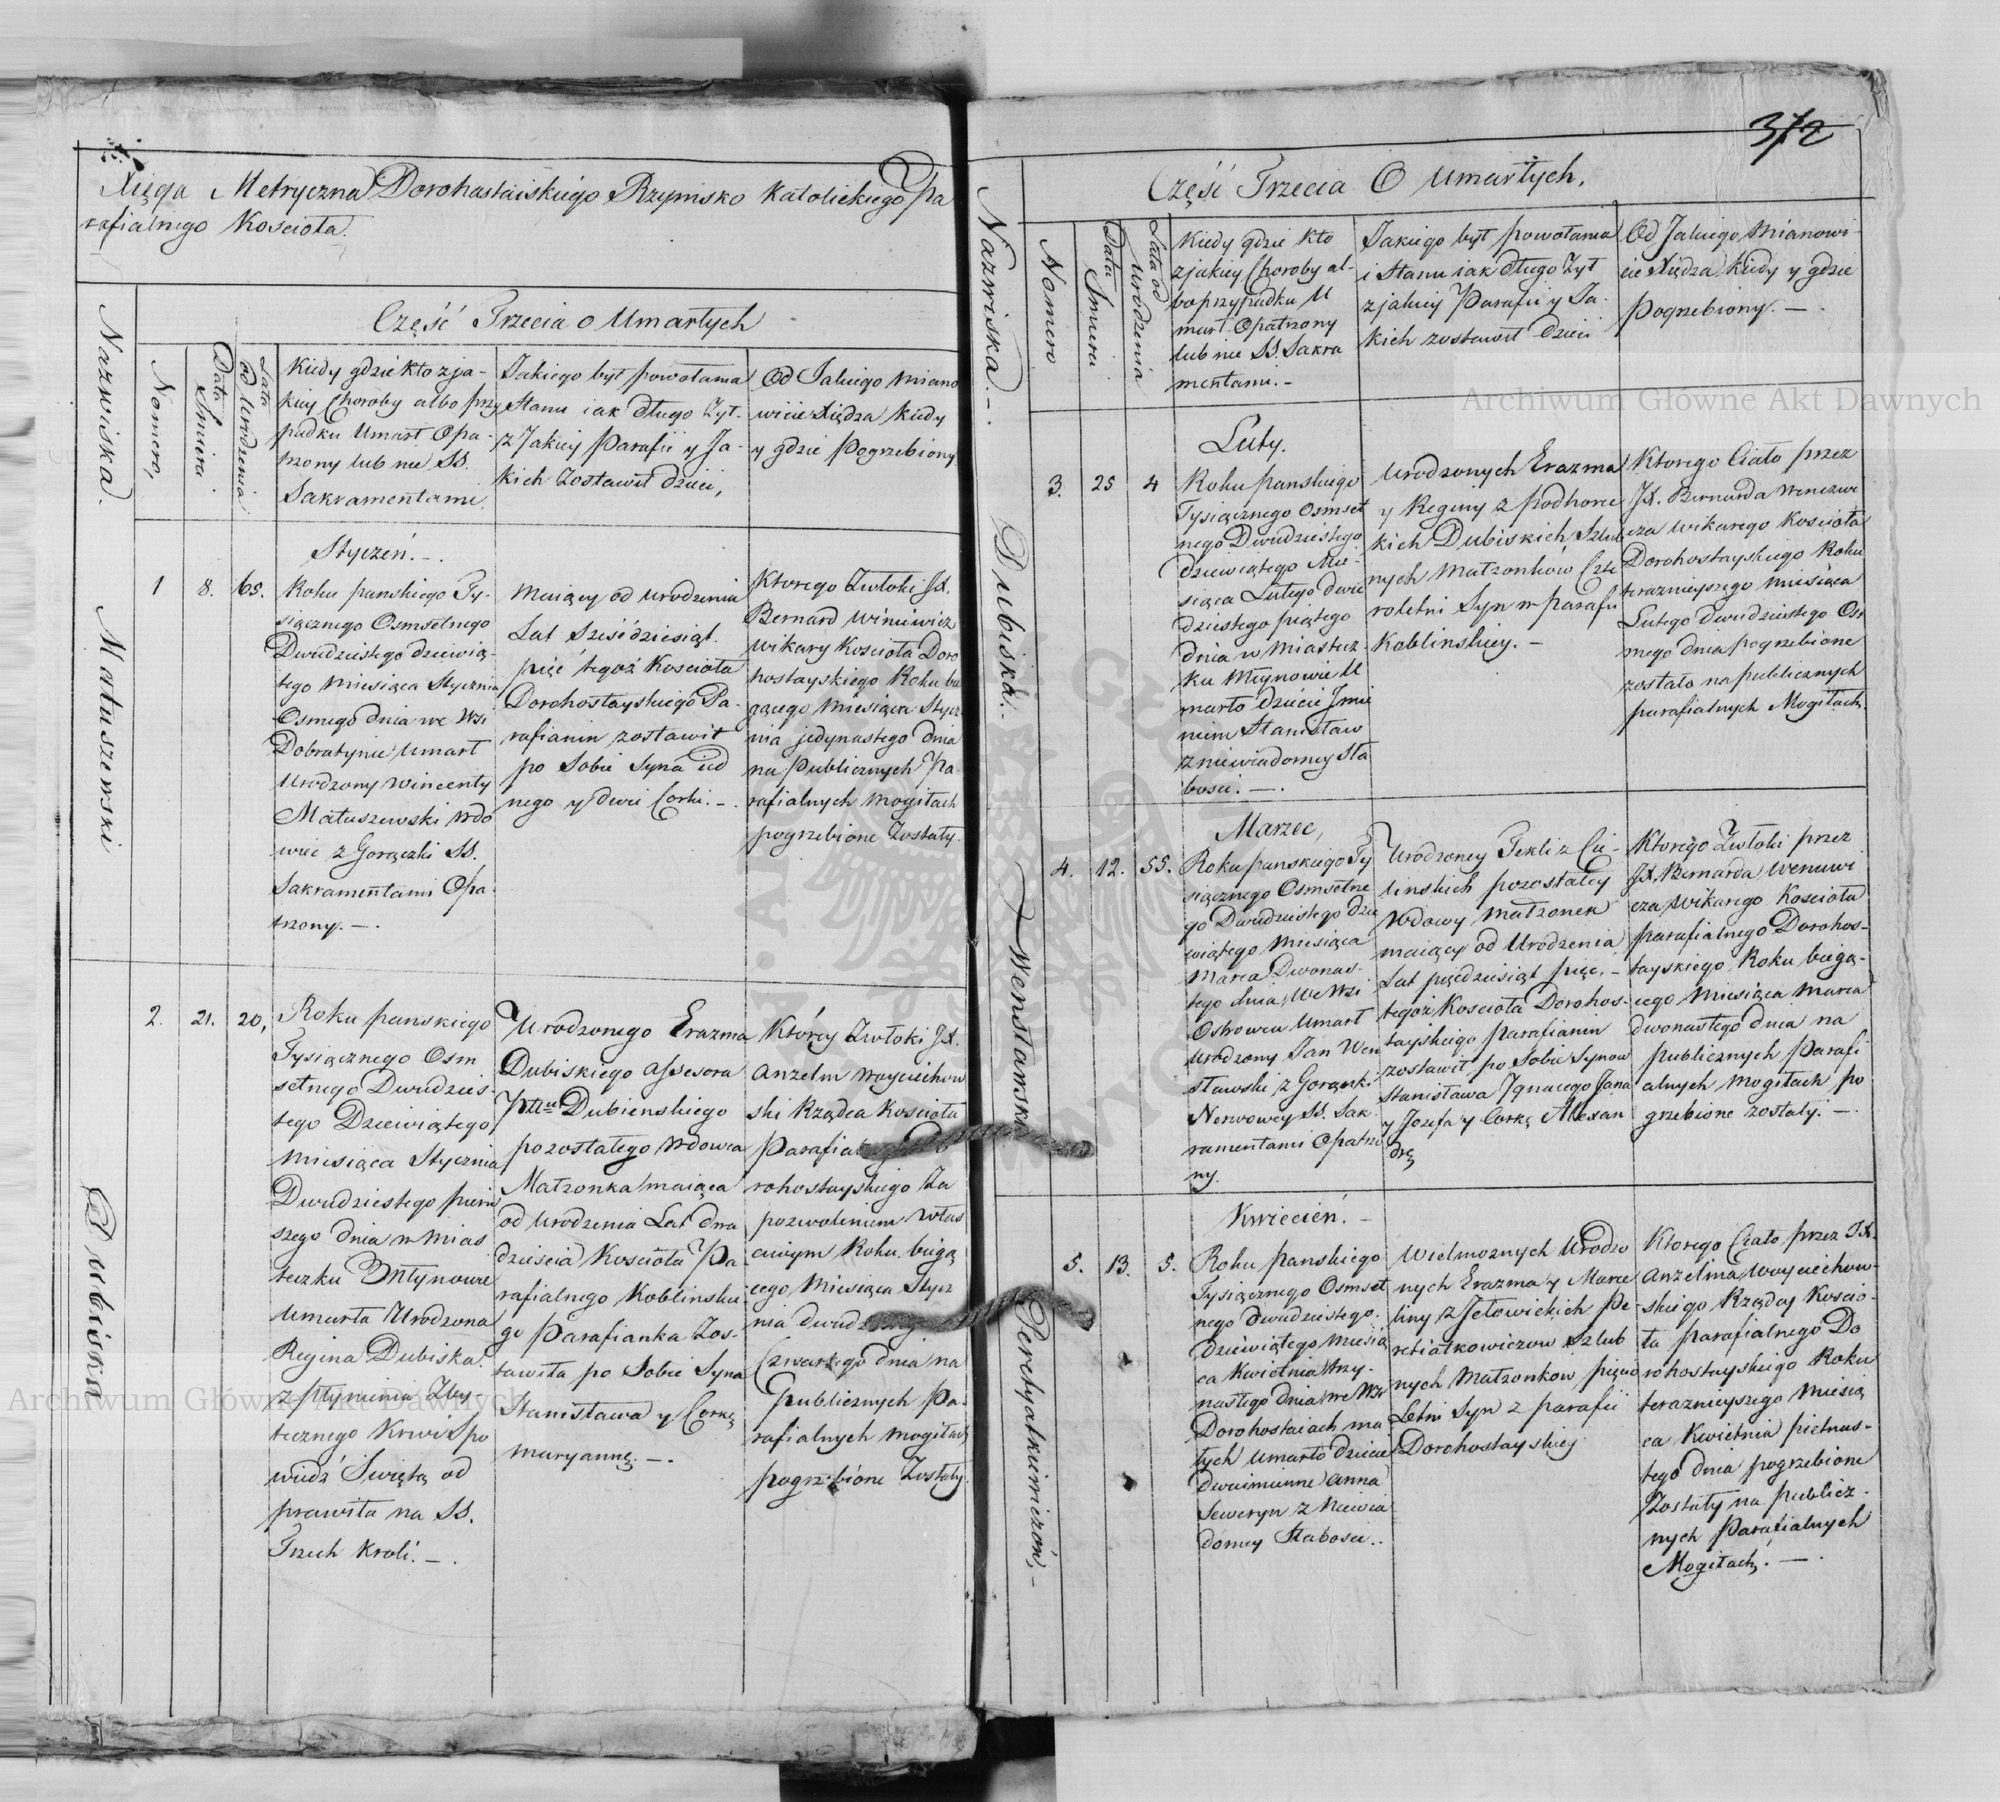 372
Xięga Metryczna Dorohastaiskiego Rzymsko Katolickiego Pa
rafialnego Koscioła.
Część Trzecia o Umarłych
Nazwiska.
Nomero,
Data Smierci.
Lata od Urodzenia
Kiedy gdzie kto z ja-
kiey Choroby albo przy
padku Umarł Opa-
trzony lub nie SS.
Sakramentami.
Jakiego był powołania
Stanu iak długo Żył.
z Jakiey Parafii y Ja-
kich Zostawił dzieci,
Od Jakiego miano
wicie Xiędza kiedy
y gdzie Pogrzebiony
Matuszewski
1 8. 65.
Styczeń. -.
Roku panskiego Ty-
siącznego Osmsetnego
Dwudziestego dziewią-
tego Miesiąca Stycznia
Osmego dnia we Wsi
Dobratynie Umarł
Urodzony Wincenty
Matuszewski wdo
wiec z Gorączki SS.
Sakramentami Opa-
trzony. -.
Maiący od Urodzenia
Lat Sześćdziesiąt
pięć tegoż Kosciola
Dorohostayskiego Pa-
rafianin zostawił
po Sobie Syna ied
nego y dwie Corki. -.
Ktorego Zwłoki JX.
Bernard Winiewicz
wikary Kosciola Doro
hostayskiego Roku bie
gącego Miesiąca Stycz
nia jedynastego dnia
na Publicznych Pa-
rafialnych mogiłach
pogrzebione Zostały.
Dubiska
2. 21. 20,
Roku panskiego
Tysiącznego Osm
setnego Dwudzies-
tego Dziewiątego
Miesiąca Stycznia
Dwudziestego pierw
szego dnia w mias
teczku Młynowie
Umarła Urodzona
Regina Dubiska
z płynienia Zby-
tecznego Krwi Spo
wiedź Swiętą od
prawiła na SS.
Trzech Kroli. -.
Urodzonego Erazma
Dubiskiego assesora
Dubienskiego
pozostałego wdowca
Małzonka maiąca
od Urodzenia Lat dwa
dziescia Kosciola Pa-
rafialnego Koblinskie
go Parafianka Zos-
tawiła po Sobie Syna
Stanisława y Corkę
Maryannę. -.
Którey Zwłoki JX.
Anzelm Woyciechow
ski Rządca Kosciola
Parafialnego Do
rohostayskiego Za
pozwoleniem włas
ciwym Roku biegą
cego Miesiąca Stycz
nia dwudziestego
Czwartego dnia na
publicznych Pa-
rafialnych mogiłach
pogrzebione Zostały.
Część Trzecia O Umarłych.
Nazwiska. -
Nomero
Data Smierci.
Lata od Urodzenia
Kiedy gdzie kto
z jakiey Choroby al-
bo przypadku U
marł Opatrzony
lub nie SS. Sakra
mentami. -
Jakiego był powołania
i Stanu iak długo Żył
z jakiey Parafii y Ja-
kich zostawił dzieci
Od Jakiego Mianowi-
cie Xiędza Kiedy y gdzie
Pogrzebiony. -.
Dubiski.
3. 25 4
Luty.
Roku panskiego
Tysiącznego Osmset
nego Dwudziestego
dziewiątego Mie-
siąca Lutego dwu
dziestego piątego
dnia w Miastecz
ku Młynowie U
marło dziecie Jmie
niem Stanisław
z niewiadomey Sła
bosci. -.
Urodzonych Erazma
y Reginy z Podhorec
kich Dubiskich Szlub
nych Małzonków Czte
roletni Syn w parafii
Koblinskiey. -
Ktorego Ciało przez
JX. Bernarda Weniewi
cza wikarego Kosciola
Dorohostayskiego Roku
terazniejszego Miesiąca
Lutego dwudziestego Os
mego dnia pogrzebione
zostało na publicznych
parafialnych Mogiłach.
Wensławski
4. 12. 55.
Marzec,
Roku panskiego Ty
siącznego Osmsetne
go Dwudziestego dzie
wiątego Miesiąca
Marca Dwonas-
tego dnia We Wsi
Ostrowcu Umarł
Urodzony Jan Wen
sławski z Gorączki
Nerwowey SS. Sak
ramentami Opatrzo
ny.
Urodzoney Tekli z Cie-
linskich pozostałey
Wdowy Małzonek
maiący od Urodzenia
Lat pięcdziesiąt pięc. -
tegoż Kosciola Dorohos-
tayskiego parafianin
zostawił po Sobie Synow
Stanisława Jgnacego Jana
y Jozefa y Corkę Alexan
drę
Ktorego Zwłoki przez
JX. Bernarda Weniewi
cza Wikarego Kosciola
parafialnego Dorohos-
tayskiego Roku biegą-
cego Miesiąca Marca
dwonastego dnia na
publicznych Parafi
alnych Mogiłach po
grzebione zostały. -.
Peretyatkiewiczow, -
5. 13. 5.
Kwiecień. -
Roku panskiego
Tysiącznego Osmset
nego dwudziestego
Dziewiątego miesią
ca Kwietnia trzy-
nastego dnia we Wsi
Dorohostaiach ma
łych Umarło dziecie
Dwuimienne Anna
Seweryn z Niewia
domey Słabosci..
Wielmoznych Urodzo
nych Erazma y Marce
liny z Jełowickich Pe-
retiatkowiczow Szlub
nych Małzonkow pięcio
Letni Syn z parafii
Dorohostayskiey
Ktorego Ciało przez JX.
Anzelma Woyciechow-
skiego Rządcy Koscio-
ła parafialnego Do
rohostayskiego Roku
terazniejszego Miesią
ca Kwietnia pietnas-
tego dnia pogrzebione
Zostały na publicz-
nych Parafialnych
Mogiłach. -.
Archiwum Główne Akt Dawnych
Archiwum Główne Akt Dawnych